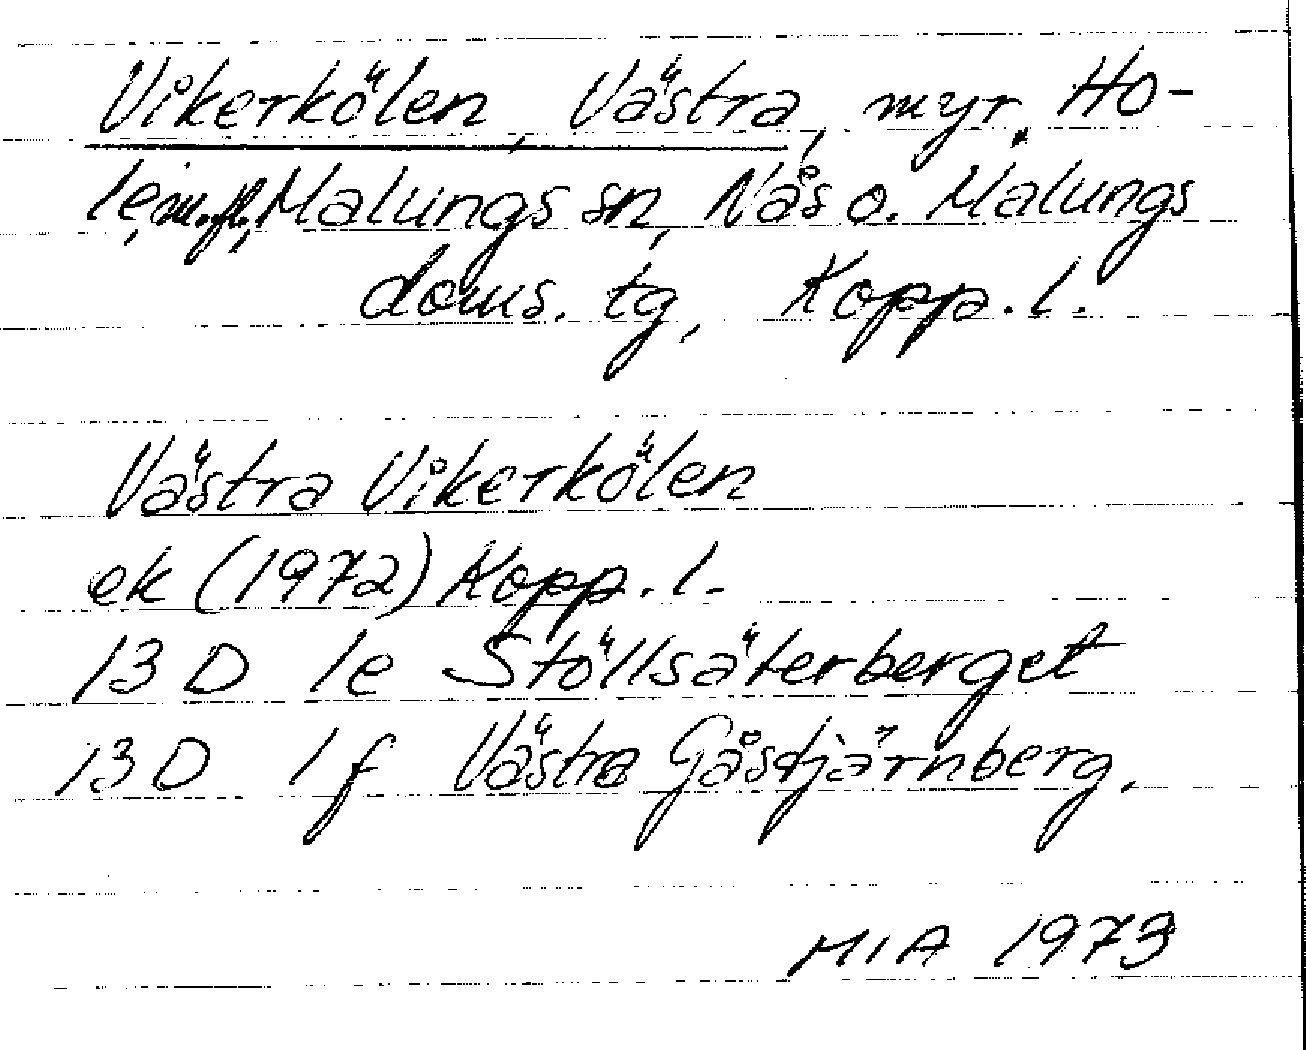 Vikerkölen, Västra, myr. Ho-
le, m.fl., Malungs sn, Nås o. Malungs
doms. tg, Kopp. l.
Västra Vikerkölen
ek (1972) Kopp. l.
13 D 1e Stöllsäterberget
13 D 1f Västra Gåstjärnberg.
MIA 1973